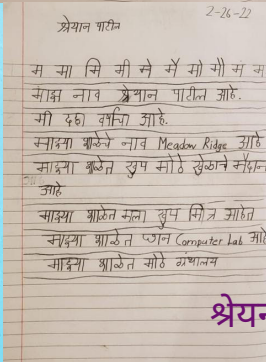 2-26-22
श्रेयान पाटील
म मा मि मी मे मै मो मौ म म
माझ नाव श्रेयान पाटील आहे.
मी दहा वर्षाचा आहे.
माझ्या शाळेचे नाव Meadow Ridge आहे
माझ्या शाळेत खुप मोठे खेळाचे मैदान
आहे
माझ्या शाळेत मला खुप मित्र आहेत
माझ्या शाळेत छान Computer Lab आहे
माझ्या शाळेत मोठे ग्रंथालय
श्रेयन